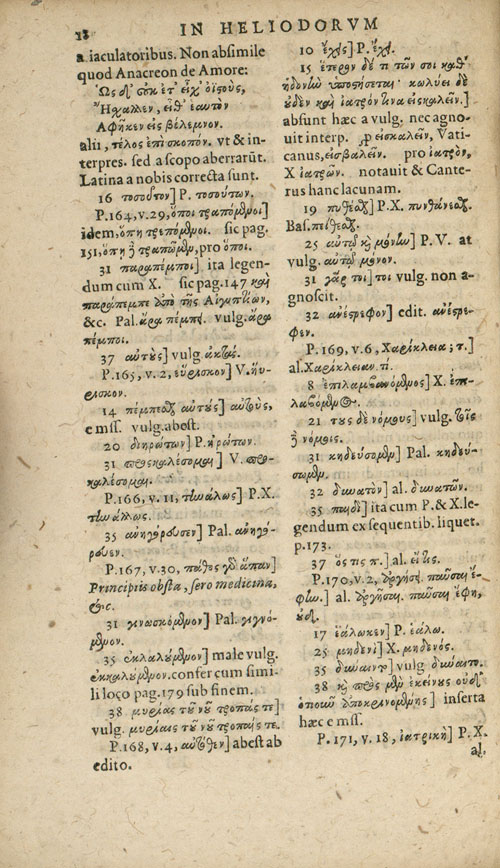 18 IN HELIODORVM
a iaculatoribus. Non absimile
quod Anacreon de Amore:
Ὡς δ' οὐκ ἔτ' εἶχ' ὀϊςοὺς,
Ἤχαλλεν, εἶθ' ἑαυτὸν
Ἀφῆκεν εἰς βέλεμνον.
alii, τέλος ἐπίσκοπόν. vt & in-
terpres. sed a scopo aberrarūt.
Latina a nobis correcta sunt.
16 τοσοῦτον] P. τοσούτων.
P.164, v.29, ὅποι τραπόμθμοι]
idem, ὅπη τρεπόμθμοι. sic pag.
151, ὅπη ἢ τραπῶμθμ, pro ὅποι.
31 παραπέμποι] ita legen-
dum cum X. sic pag.147 καὶ
παράπεμπε ὑπὸ τῆς Αἰγυπτίων,
&c. Pal. ἄρα πέμπῃ. vulg. ἄρα
πέμποι.
37 αὐτοὺς] vulg
P.165, v.2, εὕρισκον] V. ηὕ-
ρισκον.
14 πέμπεσθαι αὐτοὺς] αὐτοὺς,
e mss. vulg. abest.
20 διηρώτων] P. ἠρώτων.
31 προςκαλέσομαι] V. προ-
καλέσομαι.
P.166, v.11, τηνάλλως] P.X.
τὴν ἄλλως.
35 ἀνηγόρουσεν] Pal. ἀνηγό-
ρευεν.
P.167, v.30, πάθος γὸ ἅπαν]
Principiis obsta, sero medicina,
&c.
31 γινωσκόμθμον] Pal. γιγνό-
μθμον.
35 ἐκλαλούμθμον] male vulg.
ἐκκαλούμθμον. confer cum simi-
li loco pag.179 sub finem.
38 μυρίας τοῦ νοῦ τροπάς τε]
vulg. μυρίαις τοῦ νοῦ τροπαῖς τε.
P.168, v.4, αὐτόθεν] abest ab
edito.
10 ἔχῃς] P. ἔχῃ.
15 ἕτερον δέ τι τῶν σοι καθ'
ἡδονὴν ὑποθήσεται· κωλύει δὲ
οὐδὲν καὶ ἰατρόν τινα εἰσκαλεῖν.]
absunt hæc a vulg. nec agno-
uit interp. pro εἰσκαλεῖν, Vati-
canus, εἰσβαλεῖν. pro ἰατρὸν,
X ἰατρῶν. notauit & Cante-
rus hanc lacunam.
19 πυθέσθαι] P.X. πυνθάνεσθαι.
Bas. πείθεσθαι.
25 αὐτῷ καὶ μόνῳ] P. V. at
vulg. αὐτῷ μόνον.
31 γάρ τοι] τοι vulg. non a-
gnoscit.
32 ἀνέςρεφον] edit. ἀνέςρε-
φεν.
P.169, v.6, Χαρίκλεια; τ.]
al. Χαρίκλειαν. τί.
8 ἐπιλαμβανόμθμος] X. ἐπι-
λαβόμθμος.
21 τοὺς δὲ νόμους] vulg. τοῖς
ἢ νόμοις.
31 κηδεύσομθμ] Pal. κηδεύ-
σωμθμ.
32 δυνατὸν] al. δυνατῶν.
35 παιδὶ] ita cum P. & X. le-
gendum ex sequentib. liquet.
p.173.
37 ὅς τις π.] al. εἴ τις.
P.170, v.2, ὀργῆσαι. παῦσαι ἔ-
φην.] al. ὀργῆσαι. παῦσαι ἔφη,
17 ἑάλωκεν] P. ἑάλω.
25 μηδενὶ] X. μηδενός.
35 δύναιντο] vulg. δύναιτο.
38 καὶ πρὸς μθμ ἐκείνους οὐδ'
ὁποιοῦν ἀποκρινομθμης] inserta
hæc e mss.
P. 171, v.18, ἰατρικὴ] P. X.
al.